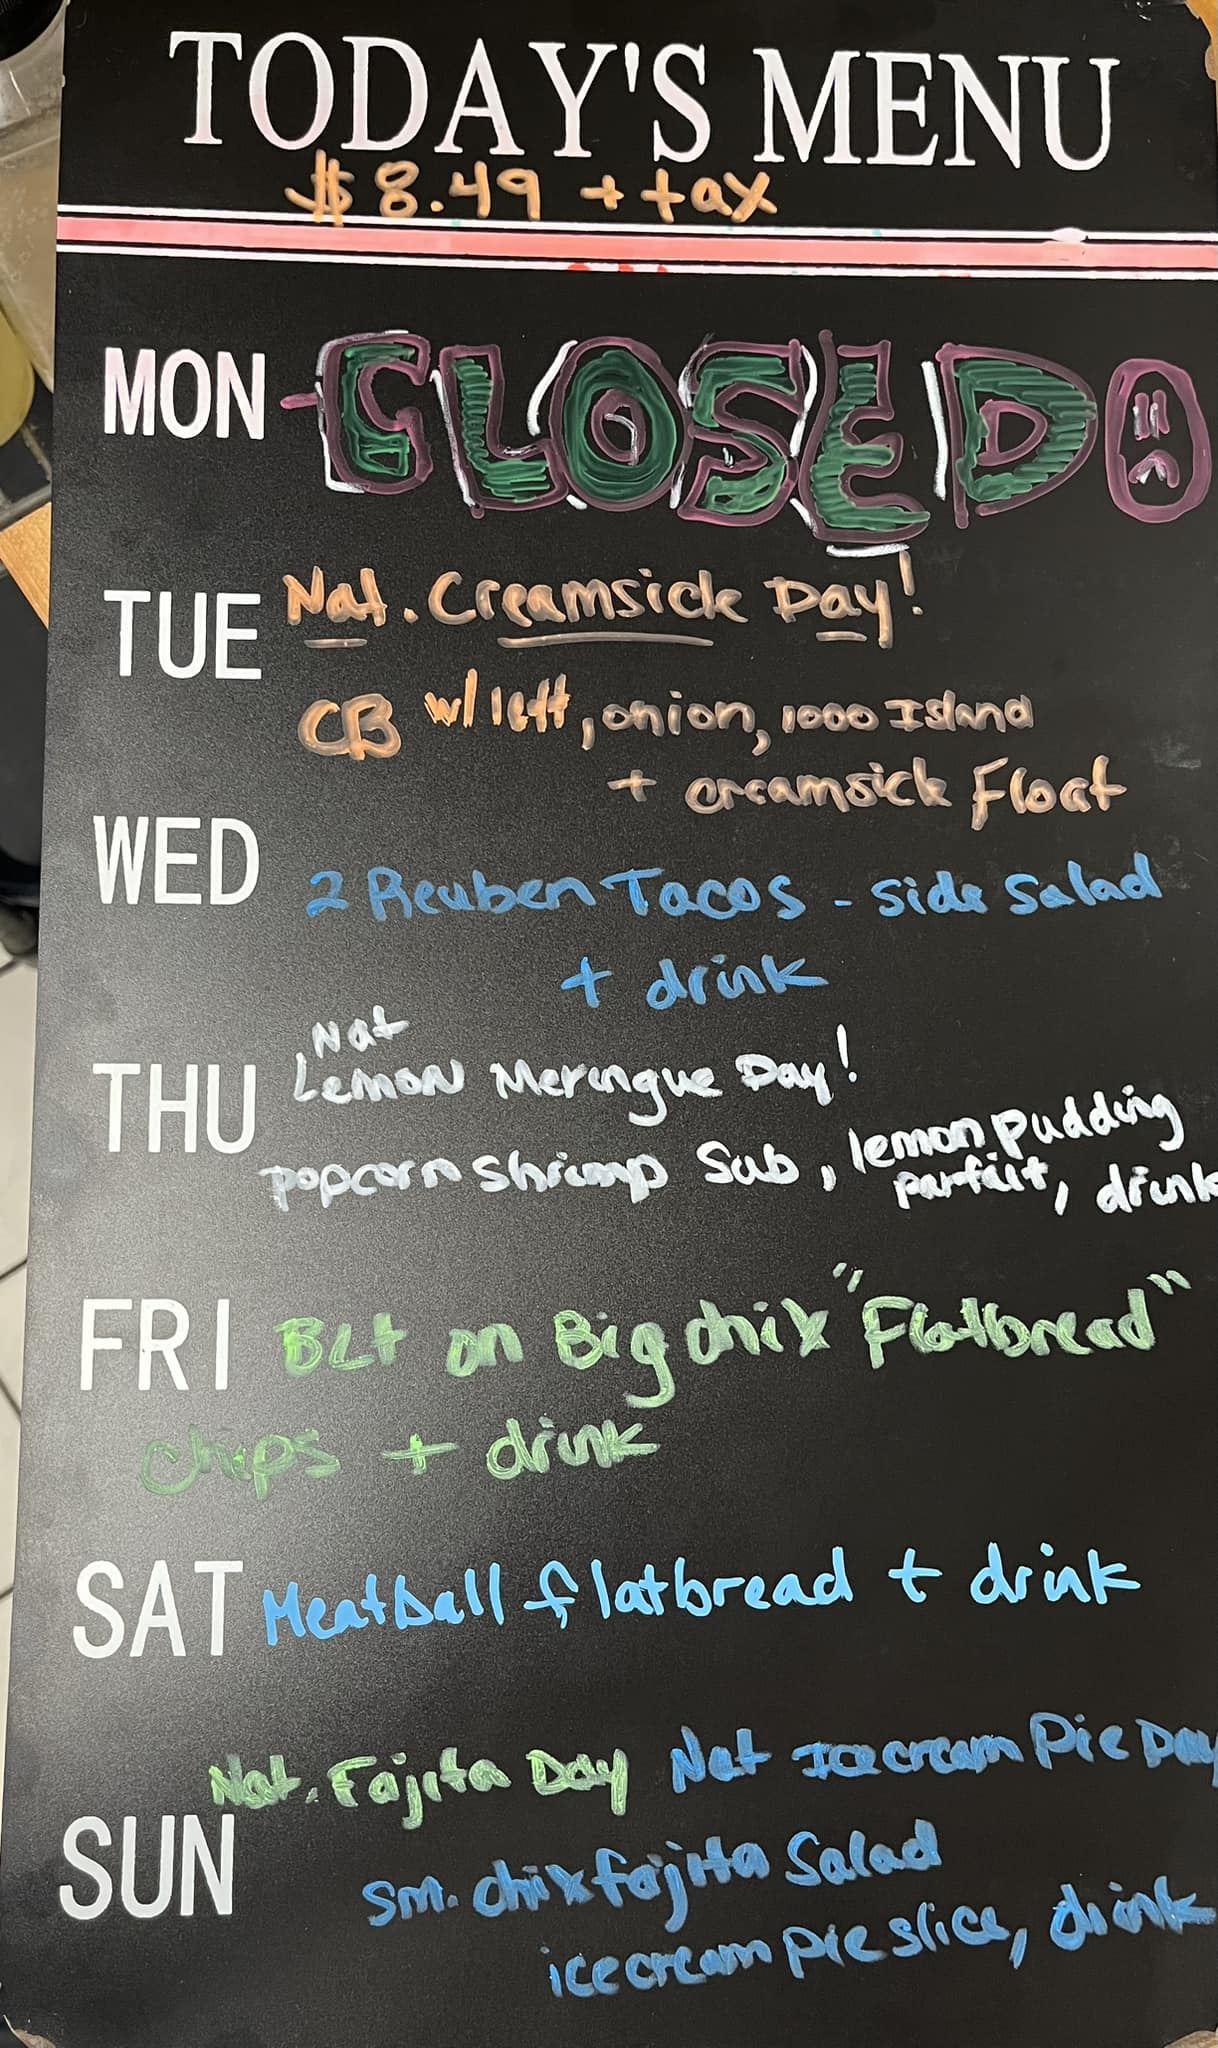 TODAY'S MENU
$8.49 + tax
MON CLOSED
TUE Nat. Creamsick Day!
CB w/ lett, onion, 1000 Island
+ creamsick Float
WED 2 Reuben Tacos - side salad
+ drink
Nat
THU Lemon Meringue Day!
popcorn shrimp Sub, lemon pudding
parfait, drink
FRI BLT on Big chix "Flatbread"
chips + drink
SAT Meatball flatbread + drink
Nat. Fajita Day Nat Icecream Pie Day
SUN sm. chix fajita Salad
icecream pie slice, drink